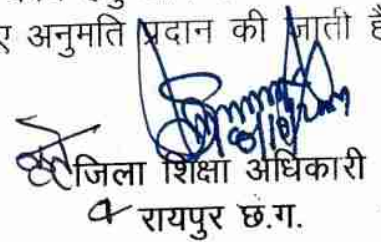 ए अनुमति प्रदान की जाती है
जिला शिक्षा अधिकारी
रायपुर छ.ग.